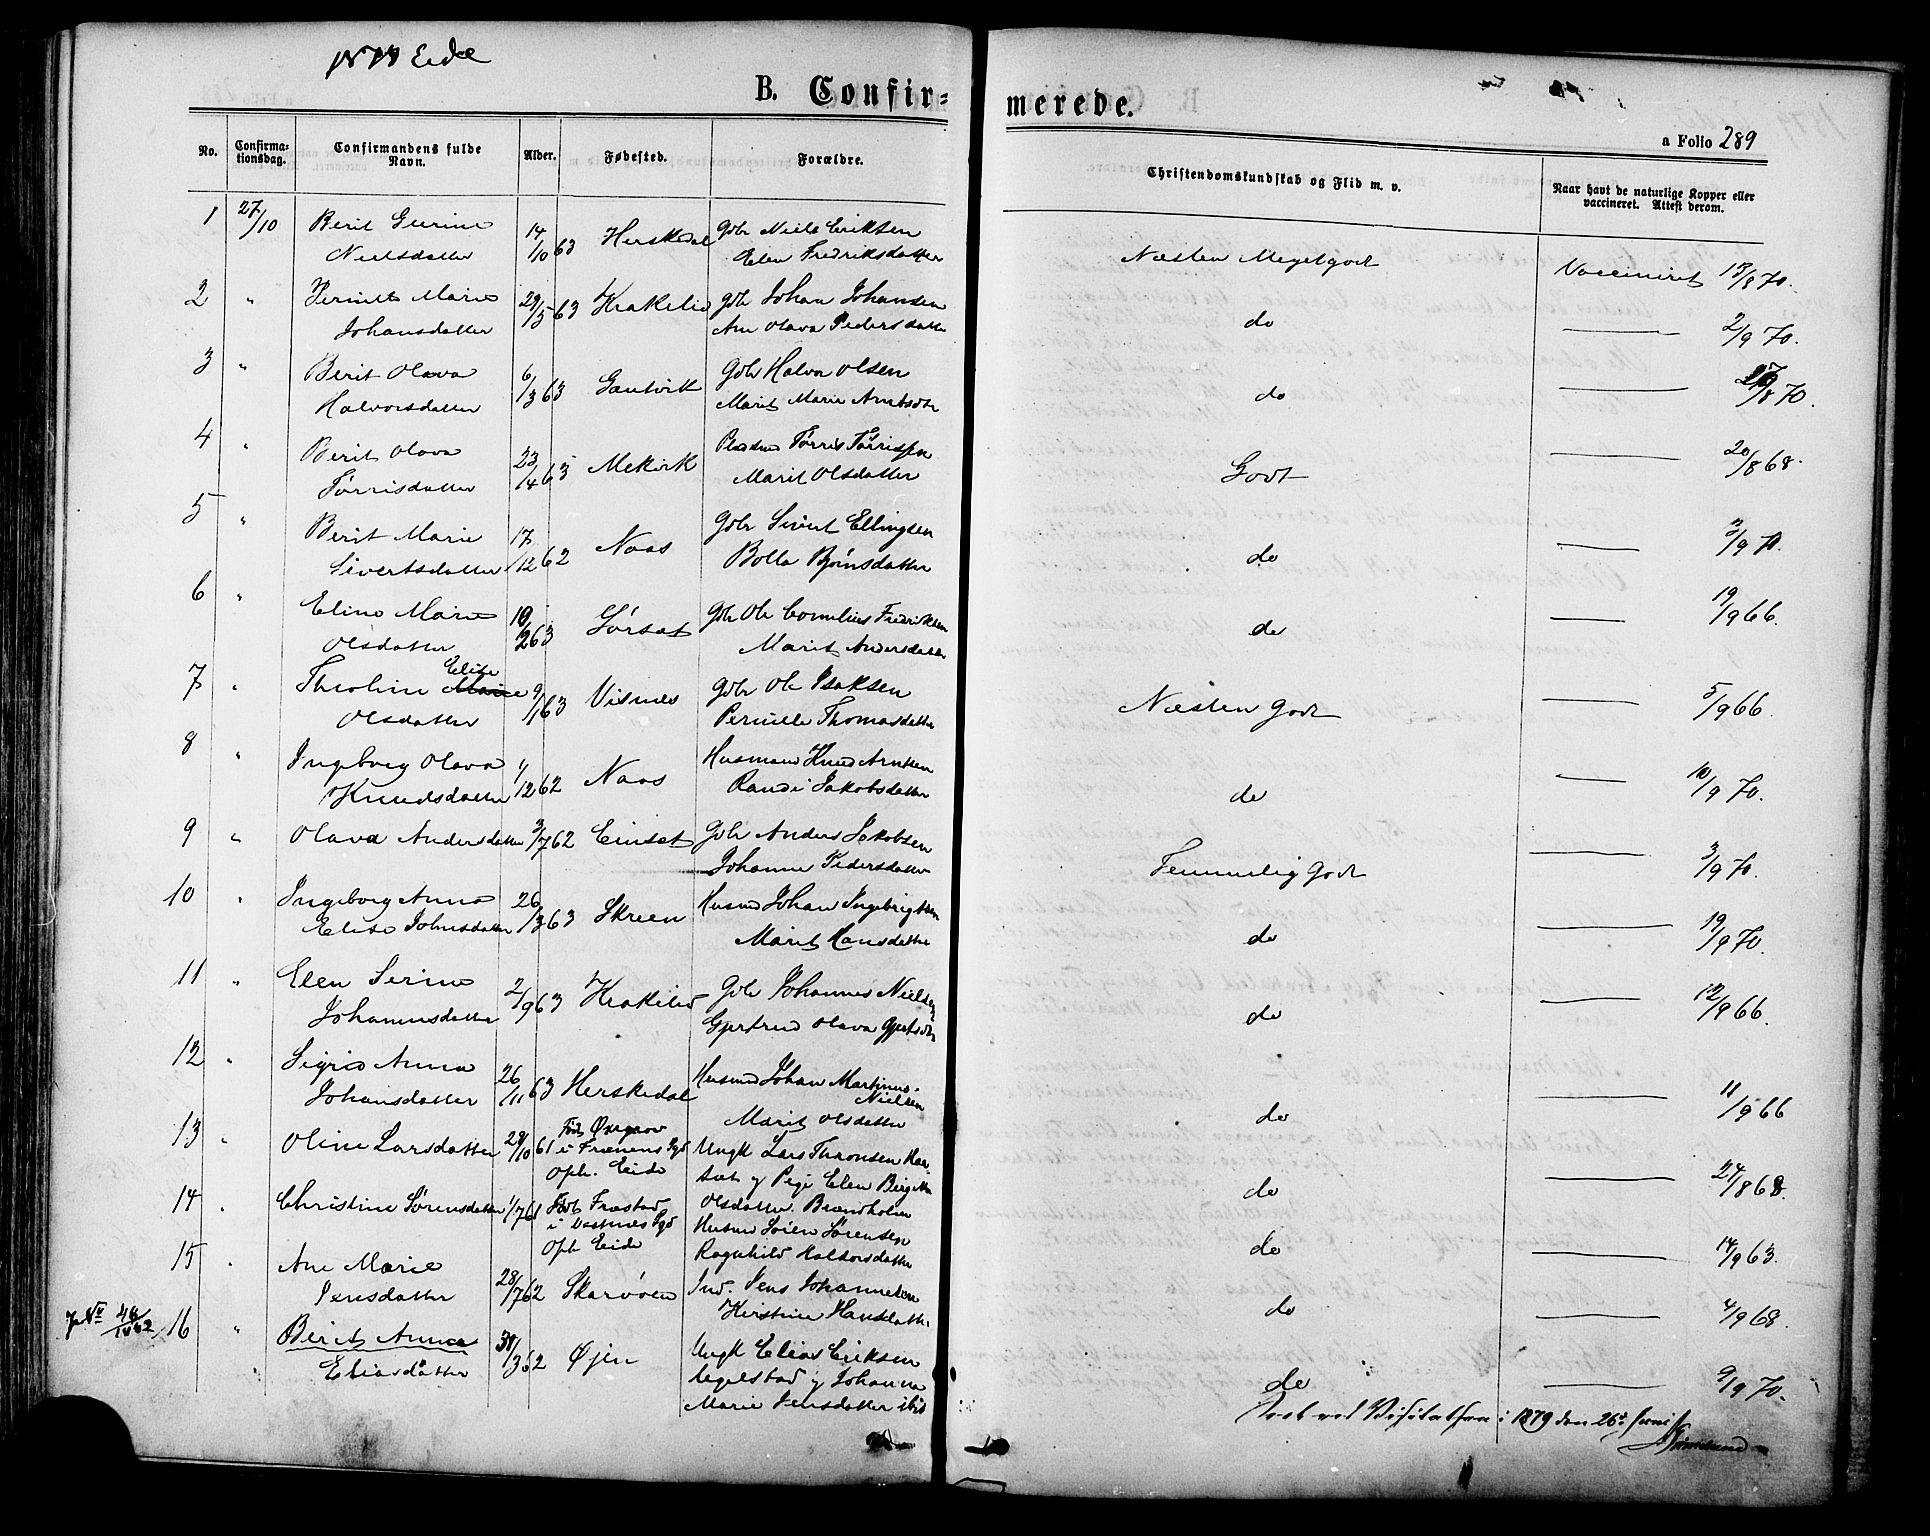 Eide
B. Confir=
merede.
a Folio 289
No.
Confirma-
tionsdag.
Confirmandens fulde
Navn.
Alder.
Fødested.
Forældre.
Christendomskundskab og Flid m. v.
Naar havt de naturlige Kopper eller
vaccineret. Attest derom.
1 27/10 Berit Gurine 14/10 63 Herskedal Gbr Niels Eriksen
Nielsdatter Elen Fredriksdatter
Næsten Meget godt Vaccineret 13/8 70.
2 " Pernille Marie 29/5 63 Krakelid Gbr Johan Johansen
Johansdatter Ane Olava Pedersdatter
do 2/9 70.
3 " Berit Olava 6/3 63 Gautvik Gbr Halvor Olsen
Halvorsdatter Marit Marie Arntsdtr
do /8 70.
4 " Berit Olava 23/4 63 Mekvik Pladsmd Tørris Tørrissen
Tørrisdatter Marit Olsdatter
Godt 20/8 68.
5 " Berit Marie 17/12 62 Naas Gbr Sivert Ellingsen
Sivertsdatter Bolla Bjørnsdatter
do 3/9 70.
6 " Eline Marie 19/2 63 Sørsæt Gbr Ole Cornelius Fredriksen
Olsdatter Marit Andersdatter
do 19/9 66.
7 " Theoline Marie Elise 9/1 63 Visnes Gbr Ole Isaksen
Olsdatter Pernille Thomasdatter
Næsten godt 5/9 66.
8 " Ingeborg Olava 1/12 62 Naas Husmand Knud Arntsen
Knudsdatter Randi Jakobsdatter
do 10/9 70.
9 " Olava Andersdatter 3/7 62 Einset Gbr Anders Jakobsen
Johanne Pedersdatter
Temmelig godt 3/9 70.
10 " Ingeborg Anna 26/3 63 Skreen Husmd Johan Ingebrigtsen
Elise Johnsdatter Marit Hansdatter
do 19/9 70.
11 " Elen Serine 2/9 63 Krakelid Gbr Johannes Nielsen
Johannesdatter Gjertrud Olava Gjertsdtr
do 12/9 66.
12 " Sigrid Anna 26/11 63 Herskedal Husmd Johan Martinus
Nielsen
Johansdatter Marit Olsdatter
do 11/9 66
13 " Oline Larsdatter 29/10 61 Født
i Frænens Pgd
Oph. Eide
Ungk Lars Thronsen
og Pige Elen Birgitte
Olsdatter
do 24/8 68.
14 " Christine Sørensdatter 1/7 61 Født Frostad
i Pgd
Oph Eide
Husmd Søren Sørensen
Ragnhild Halvorsdatter
do 14/9 63.
15 " Ane Marie 28/7 62 Skarvøen Ind. Jens Johannesen
Jensdatter Kirstine Hansdatter
do 4/9 68.
16 " Berit Anna 30/3 62 Øjen Ungk Elias Eriksen
Eliasdatter og Johanna
Marie Jensdatter ibid
do 9/9 70.
Seet ved Visitatsen i 1879 den 26de Juni